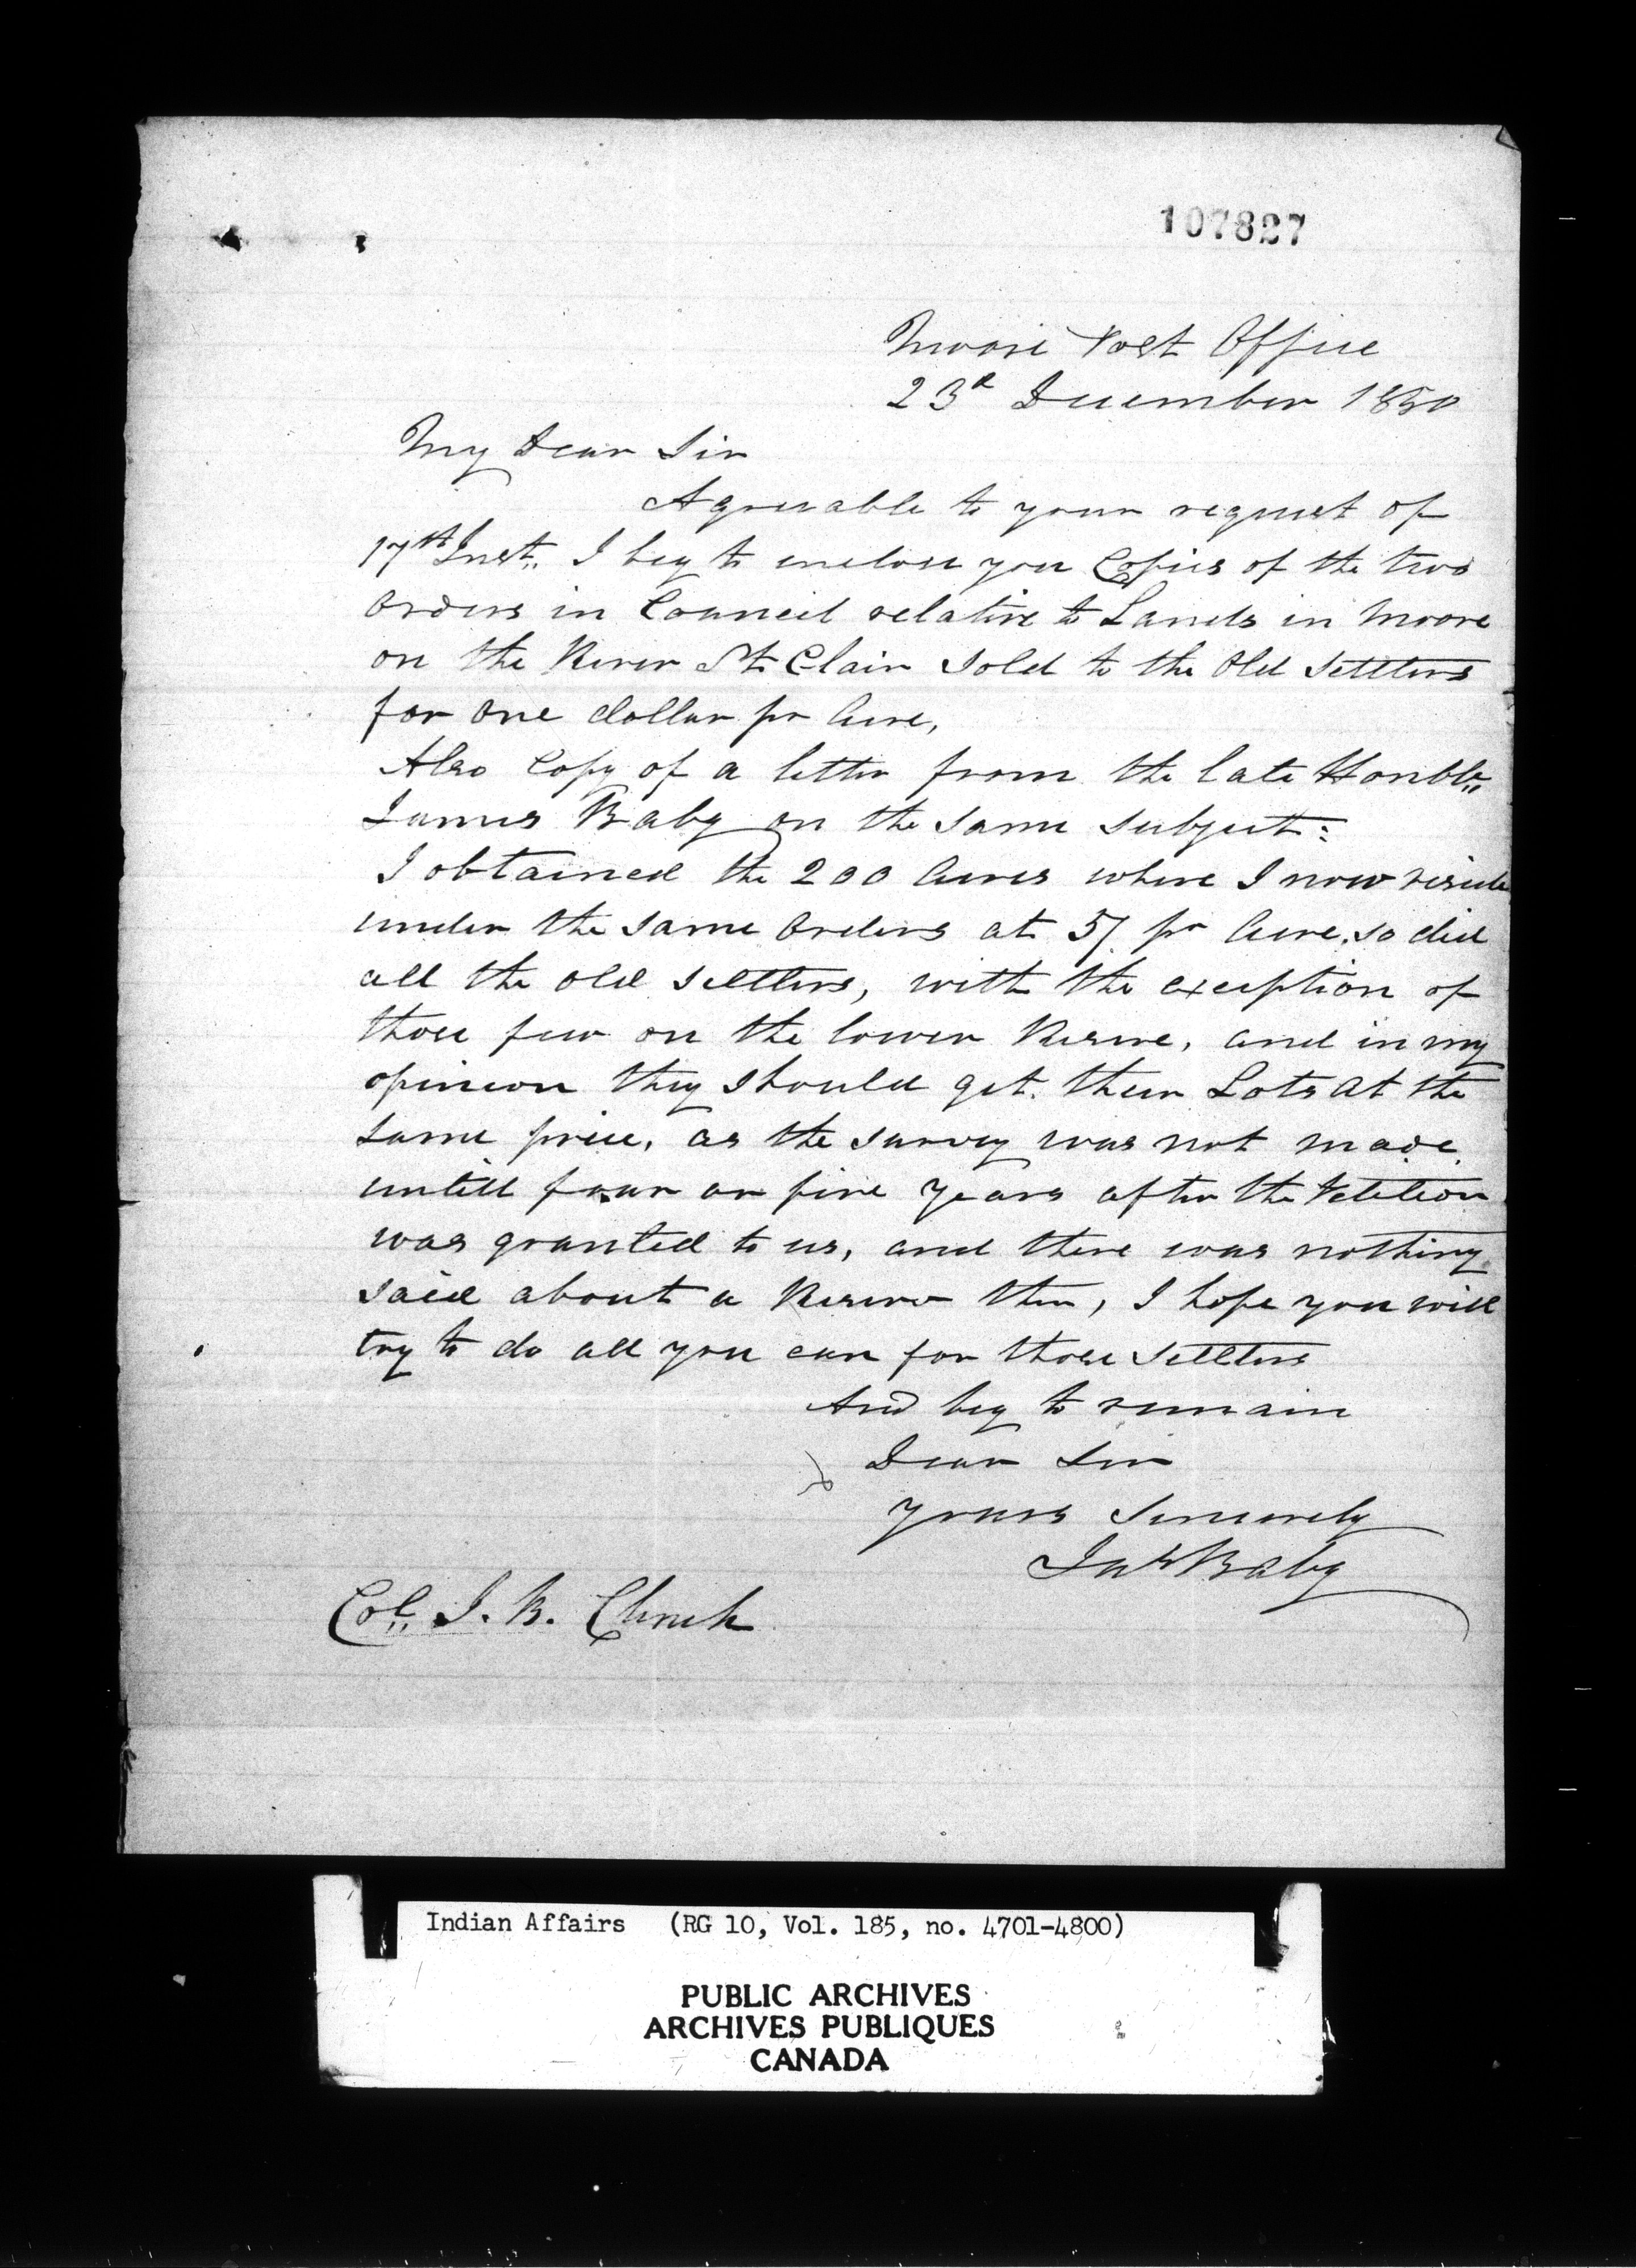 107827
Moore Post Office
23d December 1850
My Dear Sir
Agreeable to your request of
17th Inst. I beg to enclose you Copies of the two
Orders in Council relative to Lands in Moore
on the River St Clair Sold to the Old Settlers
for One dollar pr Acre,
Also Copy of a letter from the late Honble
James Baby on the Same Subject:
I obtained the 200 Acres where I now reside
under the Same Orders at 5/ pr Acre, so did
all the Old Settlers, with the exception of
those few on the lower Reserve, and in my
opinion they should get their Lots at the
Same price, as the Survey was not made
untill four or five Years after the Petition
was granted to us, and there was nothing
Said about a Reserve then, I hope you will
try to do all you can for those Settlers
And beg to remain
Dear Sir
Yours Sincerely
Jas Baby
Col. J. B. Clench
Indian Affairs (RG 10, Vol. 185, no. 4701-4800)
PUBLIC ARCHIVES
ARCHIVES PUBLIQUES
CANADA